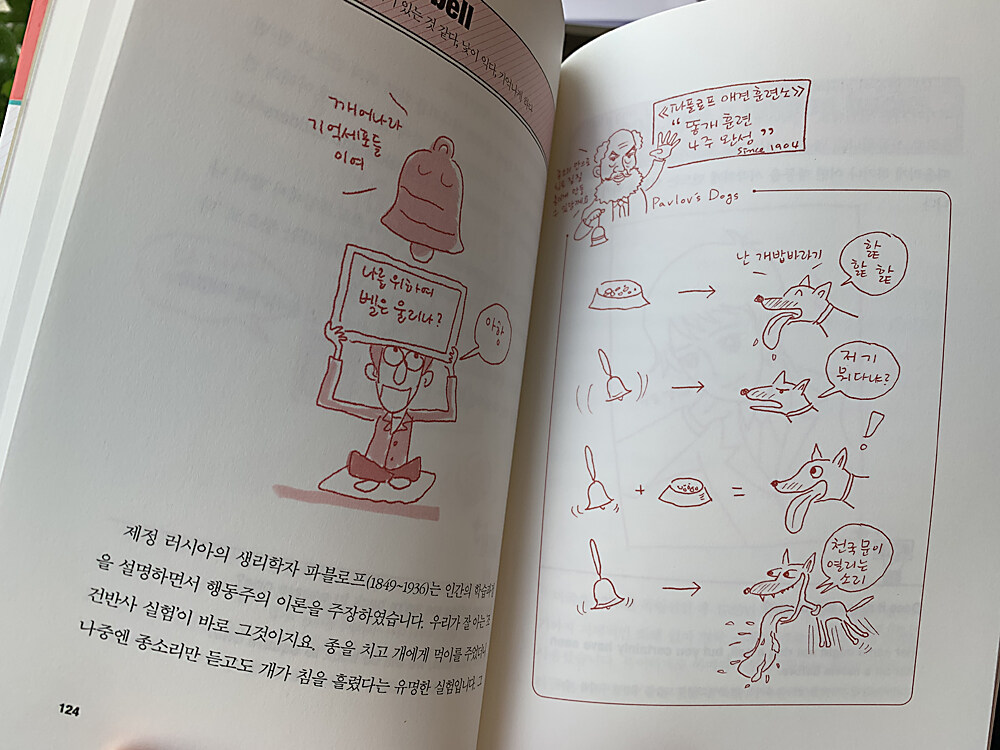 bell
있는 것 같다, 낯이 익다, 기억나게 하다
깨어나라
기억세포들
이여
나를 위하여
벨은 울리나?
아항
제정 러시아의 생리학자 파블로프(1849~1936)는 인간의 학습
을 설명하면서 행동주의 이론을 주장하였습니다. 우리가 잘 아는
건반사 실험'이 바로 그것이지요. 종을 치고 개에게 먹이를 주었다니
나중엔 종소리만 듣고도 개가 침을 흘렸다는 유명한 실험입니다. 그
124
<<파플로프 애견 훈련소>>
“똥개 훈련
나주 완성”
since 1904
Pavlov's Dogs
난 개밥바라기
핥
핥 핥
저기
뭐다냐?
!
+
=
천국문이
열리는
소리